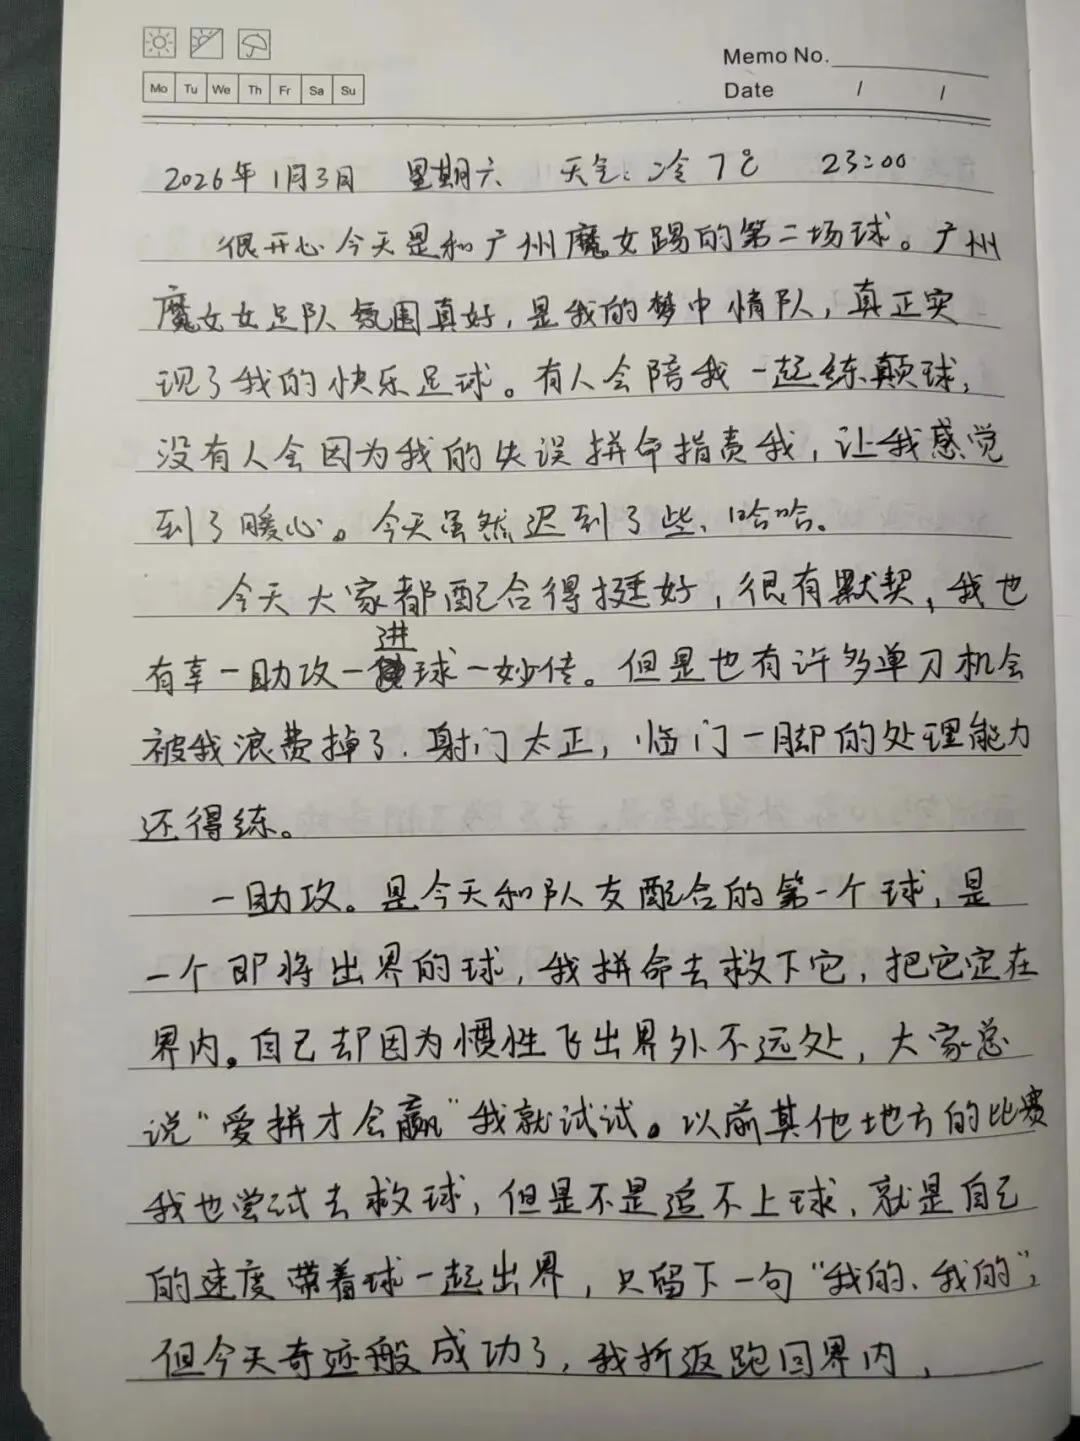 Memo No.
Mo Tu We Th Fr Sa Su
Date / /
2026年1月3日 星期六 天气:冷 7℃ 23:00
很开心今天是和广州魔女踢的第二场球。广州
魔女女足队氛围真好,是我的梦中情队,真正实
现了我的快乐足球。有人会陪我一起练颠球,
没有人会因为我的失误拼命指责我,让我感觉
到了暖心。今天虽然迟到了些、哈哈。
今天大家都配合得挺好,很有默契,我也
有幸一助攻一进球一妙传。但是也有许多单刀机会
被我浪费掉了.射门太正,临门一脚的处理能力
还得练。
一助攻。是今天和队友配合的第一个球,是
一个即将出界的球,我拼命去救下它,把它定在
界内。自己却因为惯性飞出界外不远处,大家总
说“爱拼才会赢”我就试试。以前其他地方的比赛
我也尝试去救球,但是不是追不上球,就是自己
的速度带着球一起出界,只留下一句“我的、我的”,
但今天奇迹般成功了,我折返跑回界内,